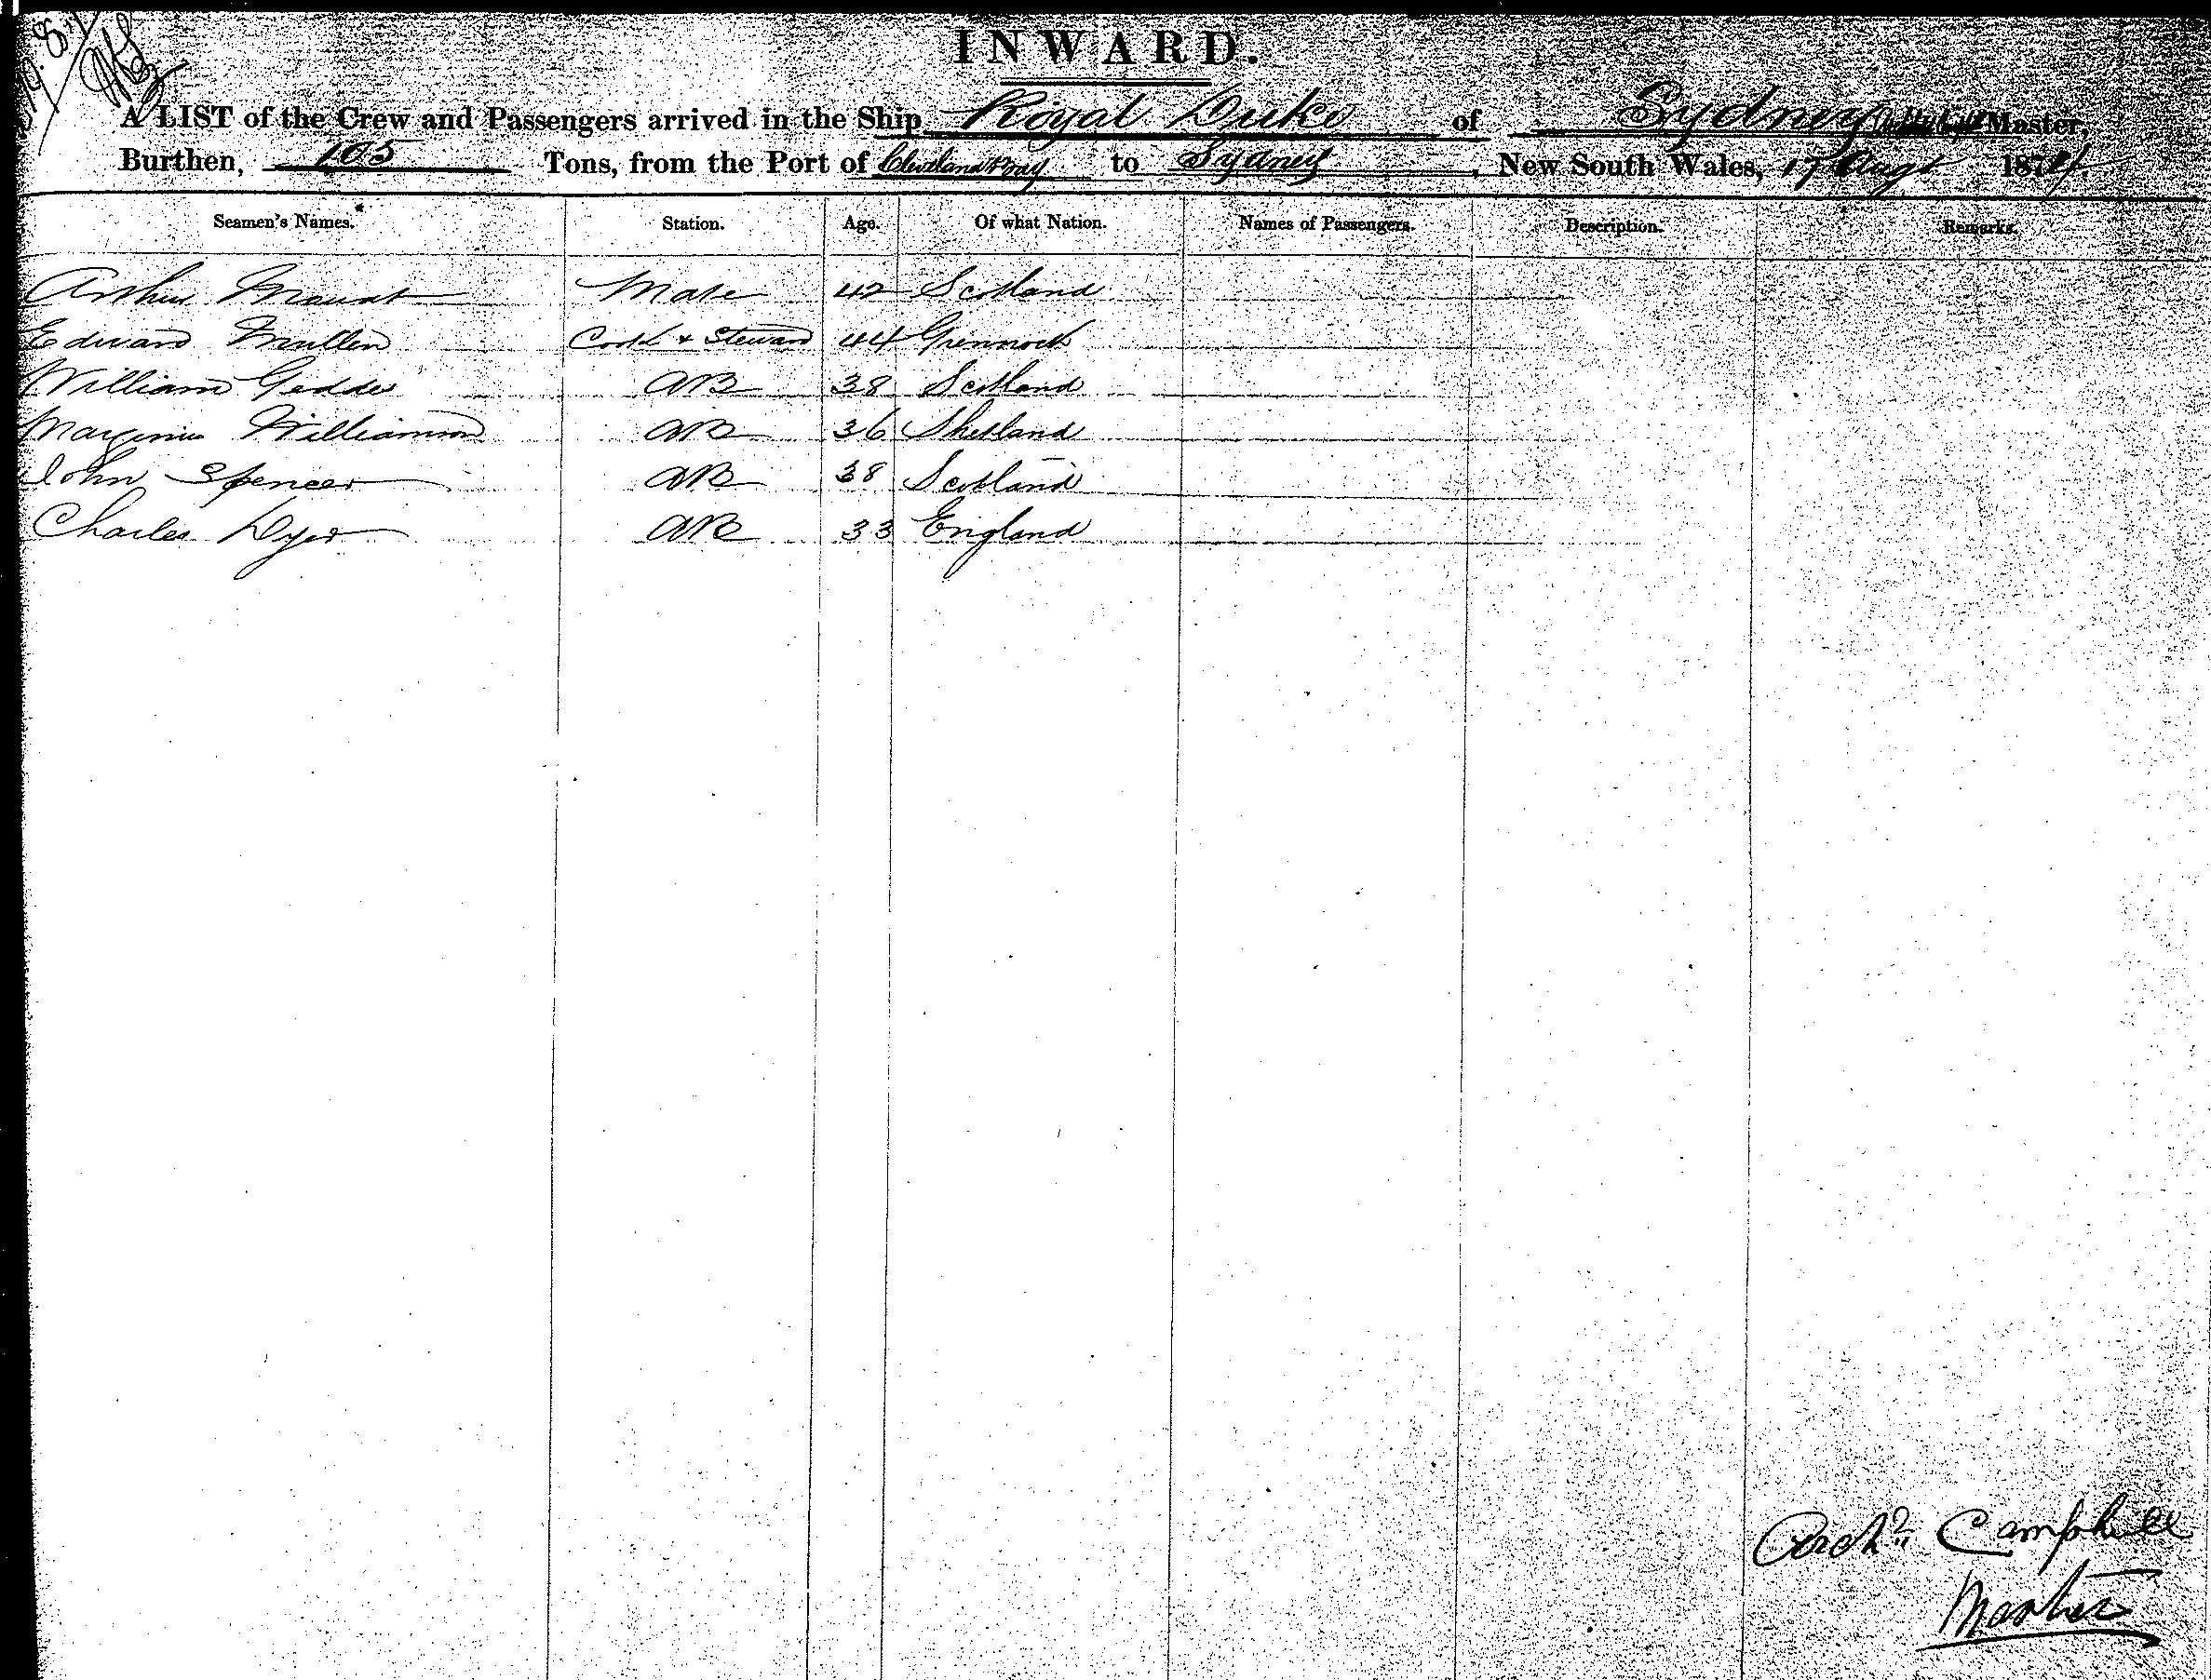 INWARD.
A LIST of the Crew and Passengers arrived in the Ship Royal Duke of Sydney Master,
Burthen, 105 Tons, from the Port of Cleveland Bay to Sydney, New South Wales, 17 Augt 1874.
Seamen's Names. Station. Age. Of what Nation. Names of Passengers. Description. Remarks.
Arthur Mate 42 Scotland
Edward Mullen Cook & Steward 44 Grennock
William Geddes AB 38 Scotland
Williamson AB 36 Shetland
John Spencer AB 38 Scotland
Charles Dyer AB 33 England
Archd. Campbell
Master